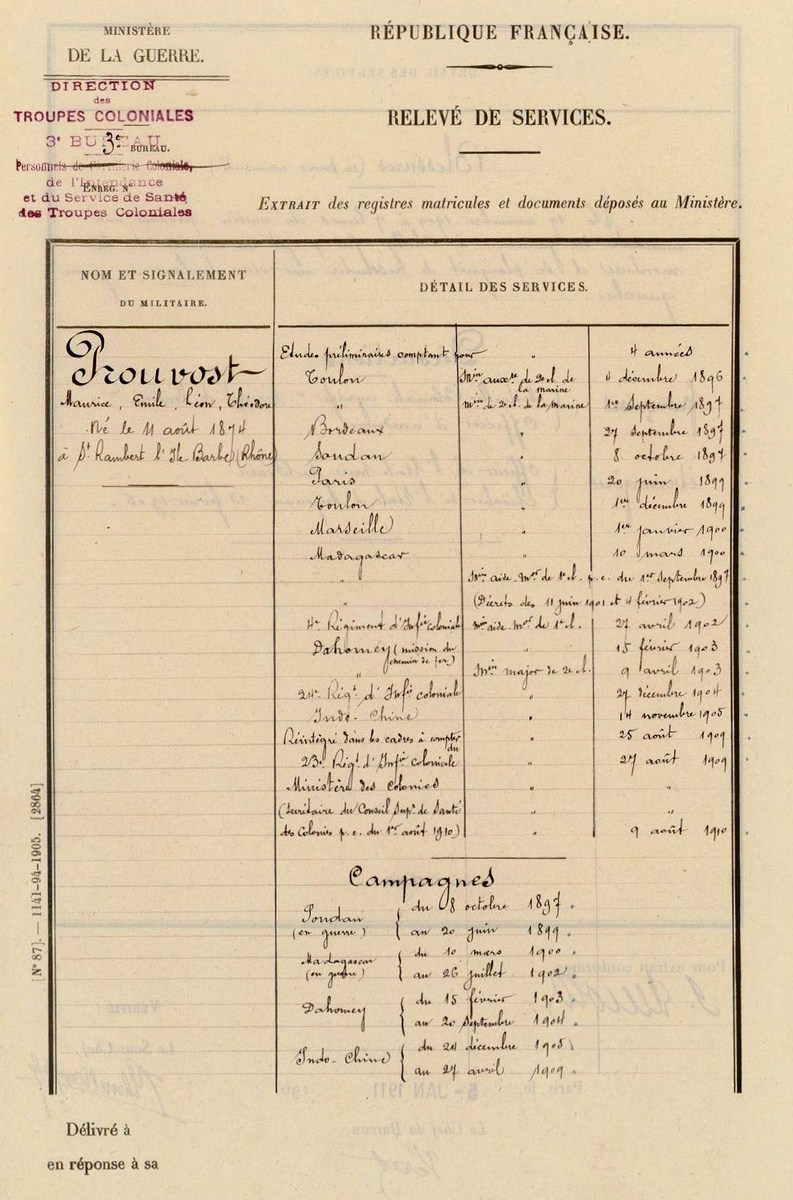 MINISTÈRE
DE LA GUERRE.
DIRECTION
des
TROUPES COLONIALES
3e BUREAU
3e BUREAU.
Personnels de
de l'Intendance
ENREG. N°
et du Service de Santé
des Troupes Coloniales
RÉPUBLIQUE FRANÇAISE.
RELEVÉ DE SERVICES.
EXTRAIT des registres matricules et documents déposés au Ministère.
NOM ET SIGNALEMENT
DU MILITAIRE.
DÉTAIL DES SERVICES.
Prouvost
Maurice, Emile, Léon, Théodore
Né le 11 août 1874
à St Rambert l'Ile Barbe (Rhône)
Etudes préliminaires comptant pour " 4 années
Toulon Min auxre de 2e cl. de la marine 4 décembre 1896
" min de 2e cl. de la marine 1er Septembre 1897
Bordeaux " 27 septembre 1897
Soudan " 8 octobre 1897
Paris " 20 juin 1899
Toulon " 1er décembre 1899
Marseille " 1er janvier 1900
Madagascar " 10 mars 1900
" Min aide-Mor de 1e cl. p.c. du 1er Septembre 1897
" (Décrets des 11 juin 1901 et 4 février 1902)
4e Régiment d'Infie coloniale Min aide-Mor de 1e cl. 27 avril 1902
Dahomey (mission du chemin de fer) " 15 février 1903
" Min major de 2e cl. 9 avril 1903
24e Régt d'Infie coloniale " 27 décembre 1904
Indo-Chine " 14 novembre 1905
Réintégré dans les cadres à compter du " 25 août 1909
23e Régt d'Infie coloniale " 27 août 1909
Ministère des Colonies " "
(Secrétaire du Conseil Supr de Santé " "
des Colonies p.c. du 1er août 1910) " 9 août 1910
Campagnes
Soudan (en guerre) { du 8 octobre 1897.
au 20 juin 1899.
Madagascar (en guerre) { du 10 mars 1900.
au 26 juillet 1902.
Dahomey { du 15 février 1903.
au 20 Septembre 1904.
Indo-Chine { du 24 décembre 1905
au 27 avril 1909.
[N° 87]. — 1141-94-1905. [2864]
Délivré à
en réponse à sa